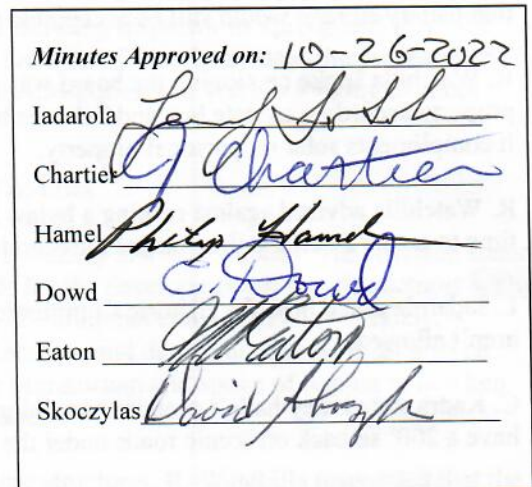 Minutes Approved on: 10-26-2022
Iadarola
Chartier CJ Chartier
Hamel Philip Hamel
Dowd C. Dowd
Eaton Eaton
Skoczylas David